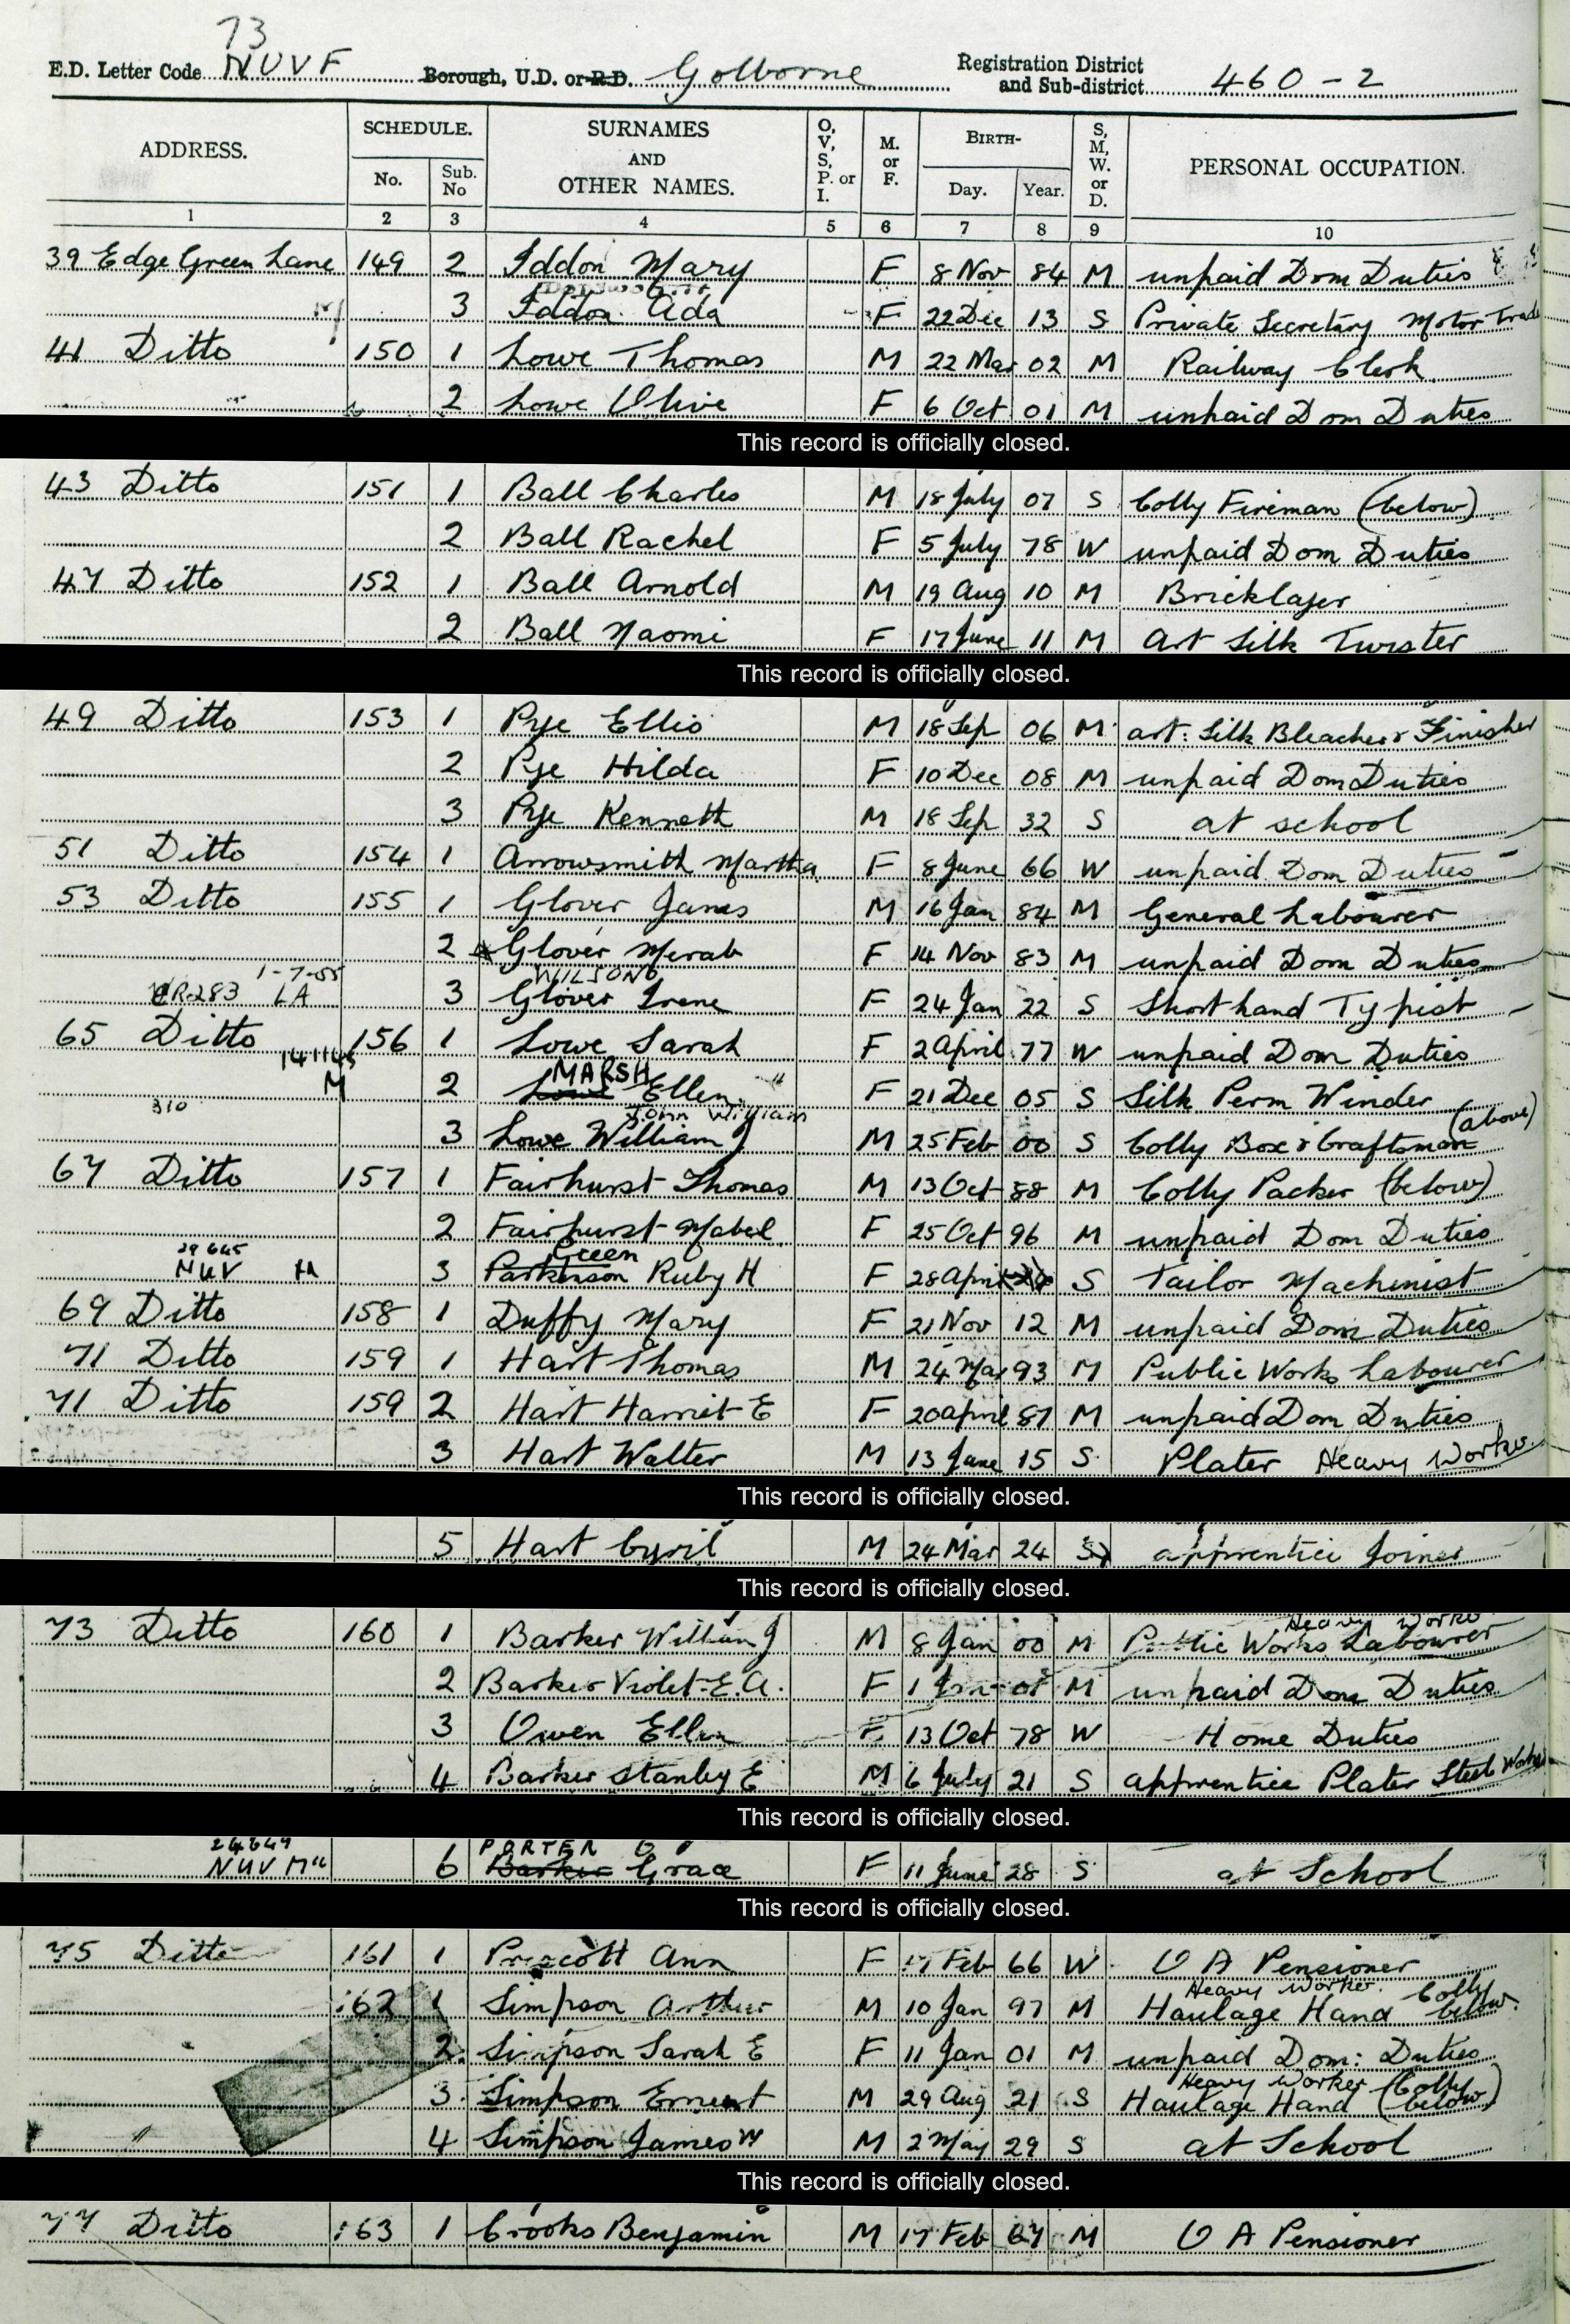 73
E.D. Letter Code NUVF Borough, U.D. or R.D. Golborne Registration District and Sub-district 460-2
ADDRESS. SCHEDULE. No. Sub. No SURNAMES AND OTHER NAMES. O, V, S, P. or I. M. or F. BIRTH- Day. Year. S, M, W. or D. PERSONAL OCCUPATION.
1 2 3 4 5 6 7 8 9 10
39 Edge Green Lane 149 2 Iddon Mary F 8 Nov 84 M unpaid Dom Duties
3 Iddon Ada F 22 Dec 13 S Private Secretary Motor Trade
41 Ditto 150 1 Lowe Thomas M 22 Mar 02 M Railway Clerk
2 Lowe Olive F 6 Oct 01 M unpaid Dom Duties
This record is officially closed.
43 Ditto 151 1 Ball Charles M 18 July 07 S Colly Fireman (below)
2 Ball Rachel F 5 July 78 W unpaid Dom Duties
47 Ditto 152 1 Ball Arnold M 19 Aug 10 M Bricklayer
2 Ball Naomi F 17 June 11 M Art Silk Twister
This record is officially closed.
49 Ditto 153 1 Pye Ellis M 18 Sep 06 M art. Silk Bleacher & Finisher
2 Pye Hilda F 10 Dec 08 M unpaid Dom Duties
3 Pye Kenneth M 18 Sep 32 S at school
51 Ditto 154 1 Arrowsmith Martha F 8 June 66 W unpaid Dom Duties
53 Ditto 155 1 Glover James M 16 Jan 84 M General Labourer
2 Glover Merab F 14 Nov 83 M unpaid Dom Duties
1-7-55 WILSON
CR283 LA 3 Glover Irene F 24 Jan 22 S Shorthand Typist
65 Ditto 156 1 Lowe Sarah F 2 April 77 W unpaid Dom Duties
141145 MARSH
M 2 Lowe Ellen F 21 Dec 05 S Silk Perm Winder
310 John William (above)
3 Lowe William J M 25 Feb 00 S Colly Box & Craftsman
67 Ditto 157 1 Fairhurst Thomas M 13 Oct 88 M Colly Packer (below)
2 Fairhurst Mabel F 25 Oct 96 M unpaid Dom Duties
29645 Green
NUV M 3 Parkinson Ruby H F 28 April S Tailor Machinist
69 Ditto 158 1 Duffy Mary F 21 Nov 12 M unpaid Dom Duties
71 Ditto 159 1 Hart Thomas M 24 Mar 93 M Public Works Labourer
71 Ditto 159 2 Hart Harriet E F 20 April 87 M unpaid Dom Duties
3 Hart Walter M 13 June 15 S Plater Heavy Worker
This record is officially closed.
5 Hart Cyril M 24 Mar 24 S apprentice Joiner
This record is officially closed.
Heavy Worker
73 Ditto 160 1 Barker William J M 8 Jan 00 M Public Works Labourer
2 Barker Violet E.A. F 1 Jan 01 M unpaid Dom Duties
3 Owen Ellen F 13 Oct 78 W Home Duties
4 Barker Stanley E M 6 July 21 S apprentice Plater Steel Works
This record is officially closed.
24649 PORTER
NUV M 6 Barker Grace F 11 June 28 S at School
This record is officially closed.
75 Ditto 161 1 Prescott Ann F 17 Feb 66 W O A Pensioner
Heavy Worker. Colly
162 1 Simpson Arthur M 10 Jan 97 M Haulage Hand below.
2 Simpson Sarah E F 11 Jan 01 M unpaid Dom: Duties
Heavy Worker (Colly
3 Simpson Ernest M 29 Aug 21 S Haulage Hand below)
4 Simpson James W M 2 May 29 S at School
This record is officially closed.
77 Ditto 163 1 Crooks Benjamin M 17 Feb 67 M O A Pensioner